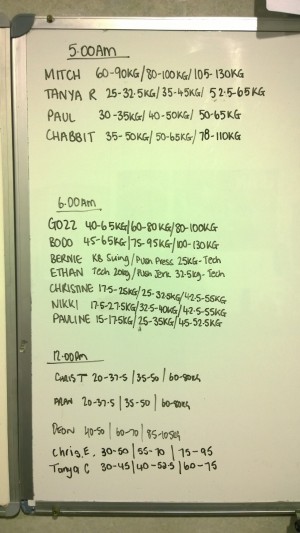 5:00Am
MITCH 60-90KG/80-100KG/105-130KG
TANYA R 25-32.5KG/35-45KG/ 52.5-65KG
PAUL 30-35KG/40-50KG/ 50-65KG
CHABBIT 35-50KG/50-65KG/ 78-110KG
6:00Am
GOZZ 40-65KG/60-80KG/80-100KG
BODO 45-65KG/75-95KG/100-130KG
BERNIE KB Swing/Push Press 25KG-Tech
ETHAN Tech 20kg/Push Jerk 32.5kg-Tech
CHRISTINE 17.5-25KG/25-32.5KG/42.5-55KG
NIKKI 17.5-27.5KG/32.5-40KG/42.5-55KG
PAULINE 15-17.5KG/25-35KG/45-52.5KG
12:00Am
CHRIS T 20-37.5 | 35-50 | 60-80KG
ARAN 20-37.5 | 35-50 | 60-80KG
DEON 40-50 | 60-70 | 85-105KG
Chris.E. 30-50 | 55-70 | 75-95
Tanya C 30-45 | 40-52.5 | 60-75